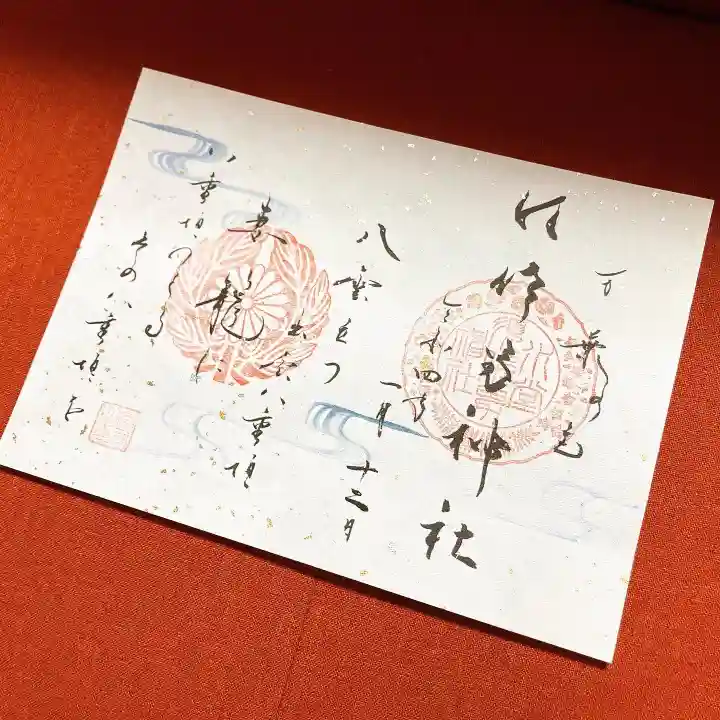 万葉の苑
須佐男神社
令和四年
一月十二日
八雲立つ
出雲八重垣
妻籠に
八重垣つくる
その八重垣を